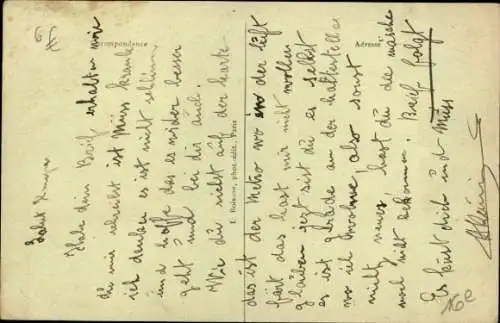 Correspondance
Adresse
E. Malcuit, phot.-édit., Paris
Salut
Habe dein Brief erhalten wie
du mir schreibst ist Müss krank
ich denke es ist nicht schlim
und hoffe das es wider besser
geht und bei dir auch.
Wie du siehst auf der karte
das ist der Metro wo in der Luft
färt das hast mir nicht wollen
glauben jetz sist du es selbst
es ist grade an der haltestelle
wo ich wohne, also sonst
nichts neues, hast du die
noch nicht bekommen. Brief folgt
Es küst dich und Müss
16e